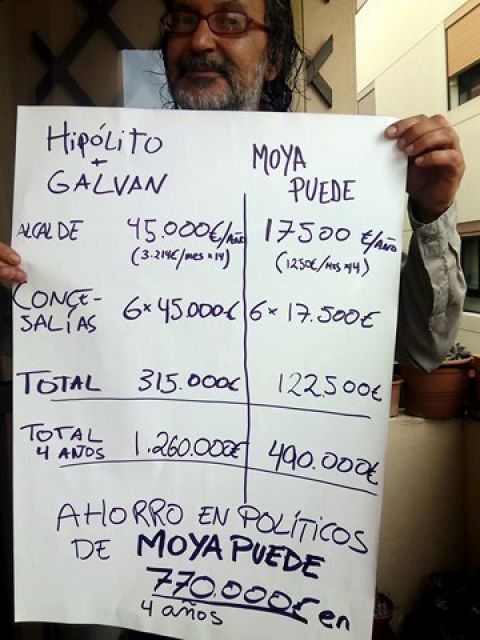 HIPÓLITO
+
GALVAN
MOYA
PUEDE
ALCALDE 45.000€/AÑO 17500 €/AÑO
(3.214€/mes x14) (1250€/mes x14)
CONCE-
SALÍAS 6x45.000€ 6x17.500€
TOTAL 315.000€ 122500€
TOTAL
4 AÑOS 1.260.000€ 490.000€
AHORRO EN POLÍTICOS
DE MOYA PUEDE
770.000€ en
4 años